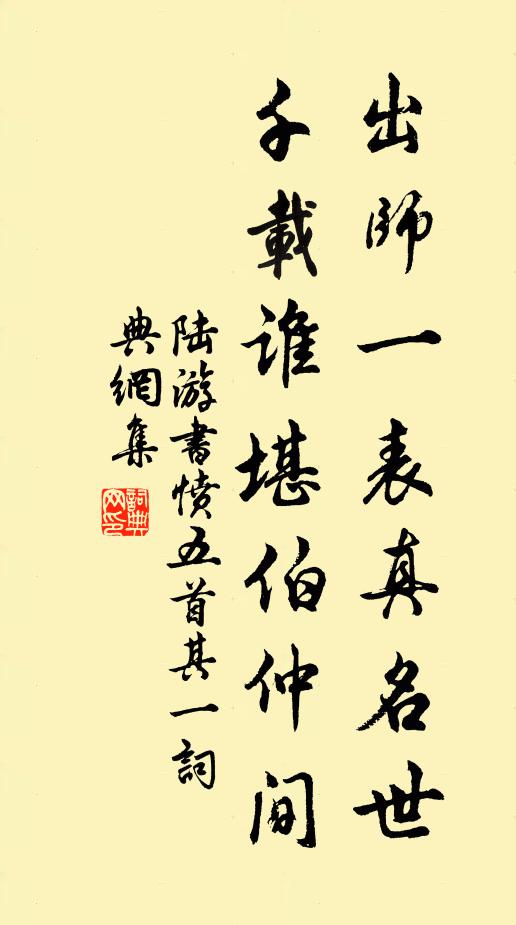 出師一表真名世
千載誰堪伯仲間
陆游書憤五首其一詞
典網集
詞典
网印